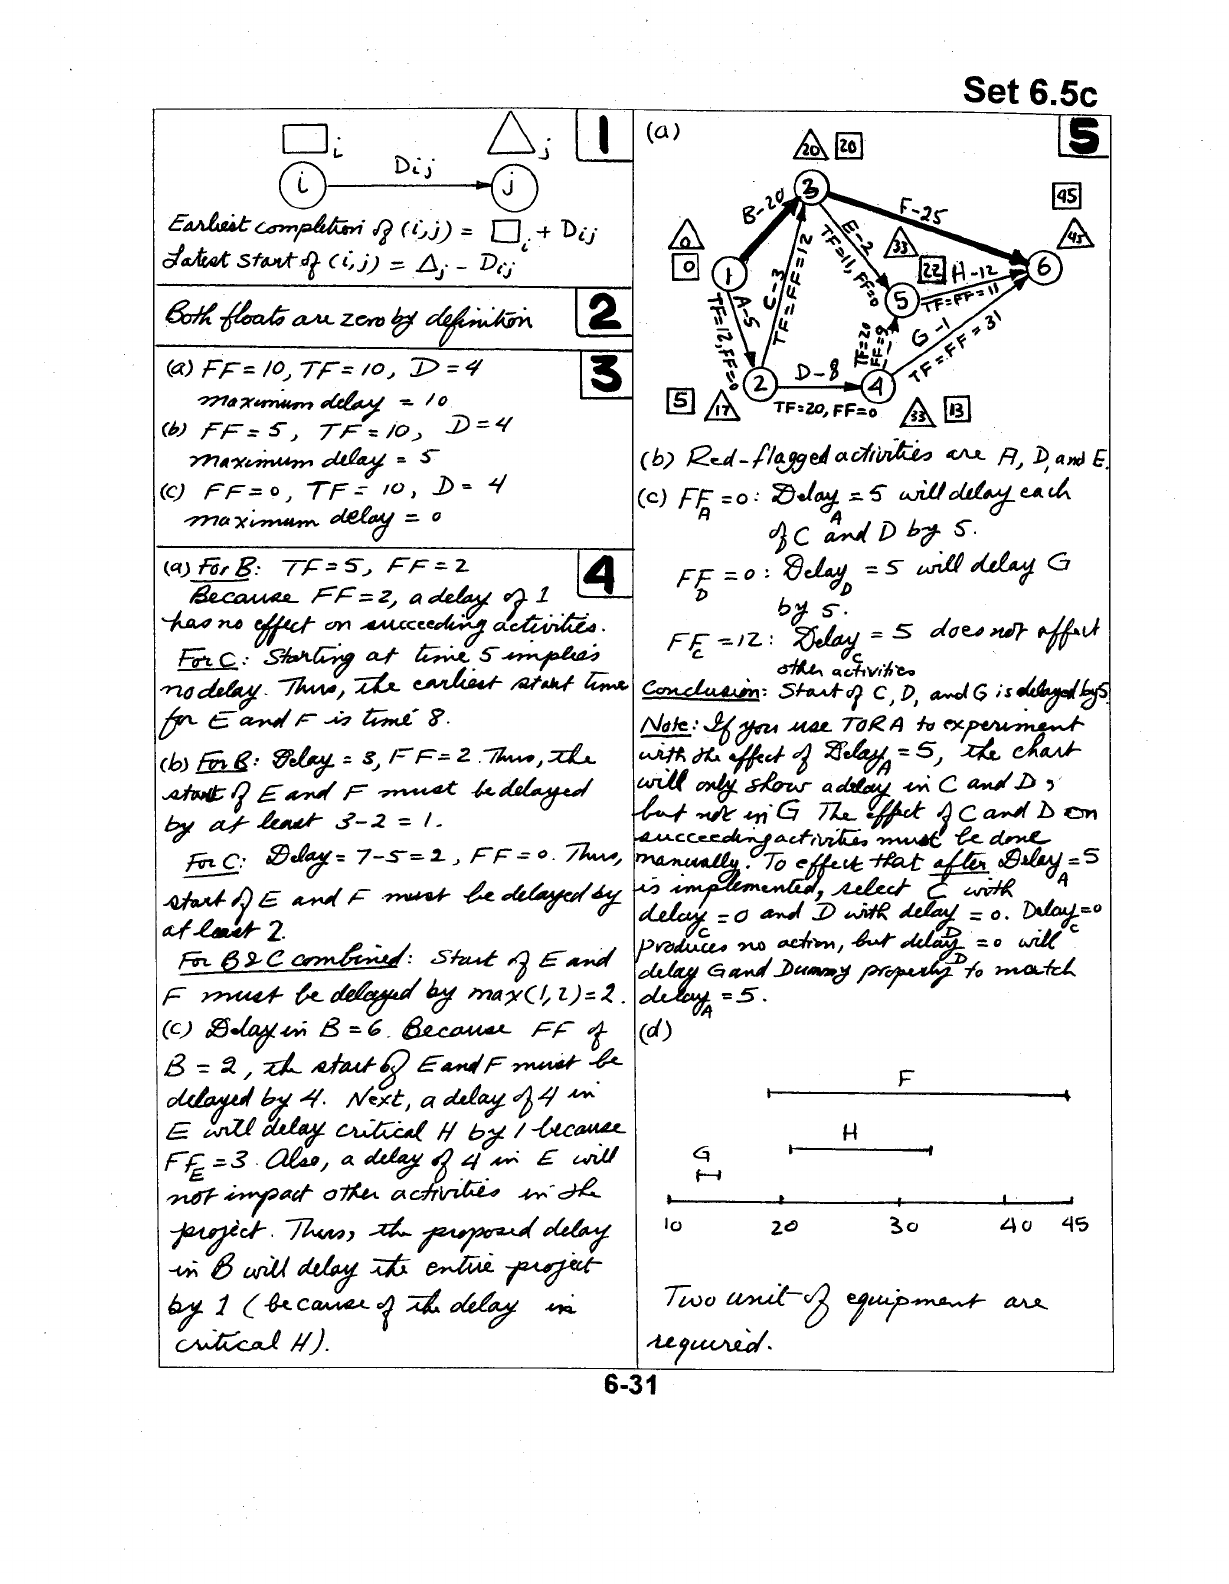 Set 6.5c
1
□i △j
i Dij j
Earliest completion of (i,j) = □i + Dij
Latest start of (i,j) = △j - Dij
2
Both floats are zero by definition
3
(a) FF = 10, TF = 10, D = 4
maximum delay = 10
(b) FF = 5, TF = 10, D = 4
maximum delay = 5
(c) FF = 0, TF = 10, D = 4
maximum delay = 0
4
(a) For B: TF = 5, FF = 2
Because FF = 2, a delay of 1
has no effect on succeeding activities.
For C: Starting at time 5 implies
no delay. Thus, the earliest start time
for E and F is time 8.
(b) For B: Delay = 3, FF = 2. Thus, the
start of E and F must be delayed
by at least 3-2 = 1.
For C: Delay = 7-5 = 2, FF = 0. Thus,
start of E and F must be delayed by
at least 2.
For B & C combined: Start of E and
F must be delayed by max(1,2) = 2.
(c) Delay in B = 6. Because FF of
B = 2, the start of E and F must be
delayed by 4. Next, a delay of 4 in
E will delay critical H by 1 because
FFE = 3. Also, a delay of 4 in E will
not impact other activities in the
project. Thus, the proposed delay
in B will delay the entire project
by 1 (because of the delay in
critical H).
5
(a)
20 20
3
B-20
F-25
45
45
0
0
1
E-2
TF=11, FF=0
33
22
H-12
TF=FF=11
6
5
A-5
TF=12, FF=0
C-3
TF=FF=12
TF=20
FF=9
G-1
TF=FF=31
2
D-8
TF=20, FF=0
4
5
17
33
13
(b) Red-flagged activities are A, D, and E.
(c) FFA = 0: DelayA = 5 will delay each
of C and D by 5.
FFD = 0: DelayD = 5 will delay G
by 5.
FFC = 12: DelayC = 5 does not affect
other activities
Conclusion: Start of C, D, and G is delayed by 5.
Note: If you use TORA to experiment
with the effect of DelayA = 5, the chart
will only show a delay in C and D,
but not in G The effect of C and D on
succeeding activities must be done
manually. To effect that after DelayA = 5
is implemented, select C with
delayC = 0 and D with delayD = 0. DelayC = 0
produces no action, but delayD = 0 will
delay G and Dummy properly to match
delayA = 5.
(d)
F
H
G
10 20 30 40 45
Two unit of equipment are
required.
6-31